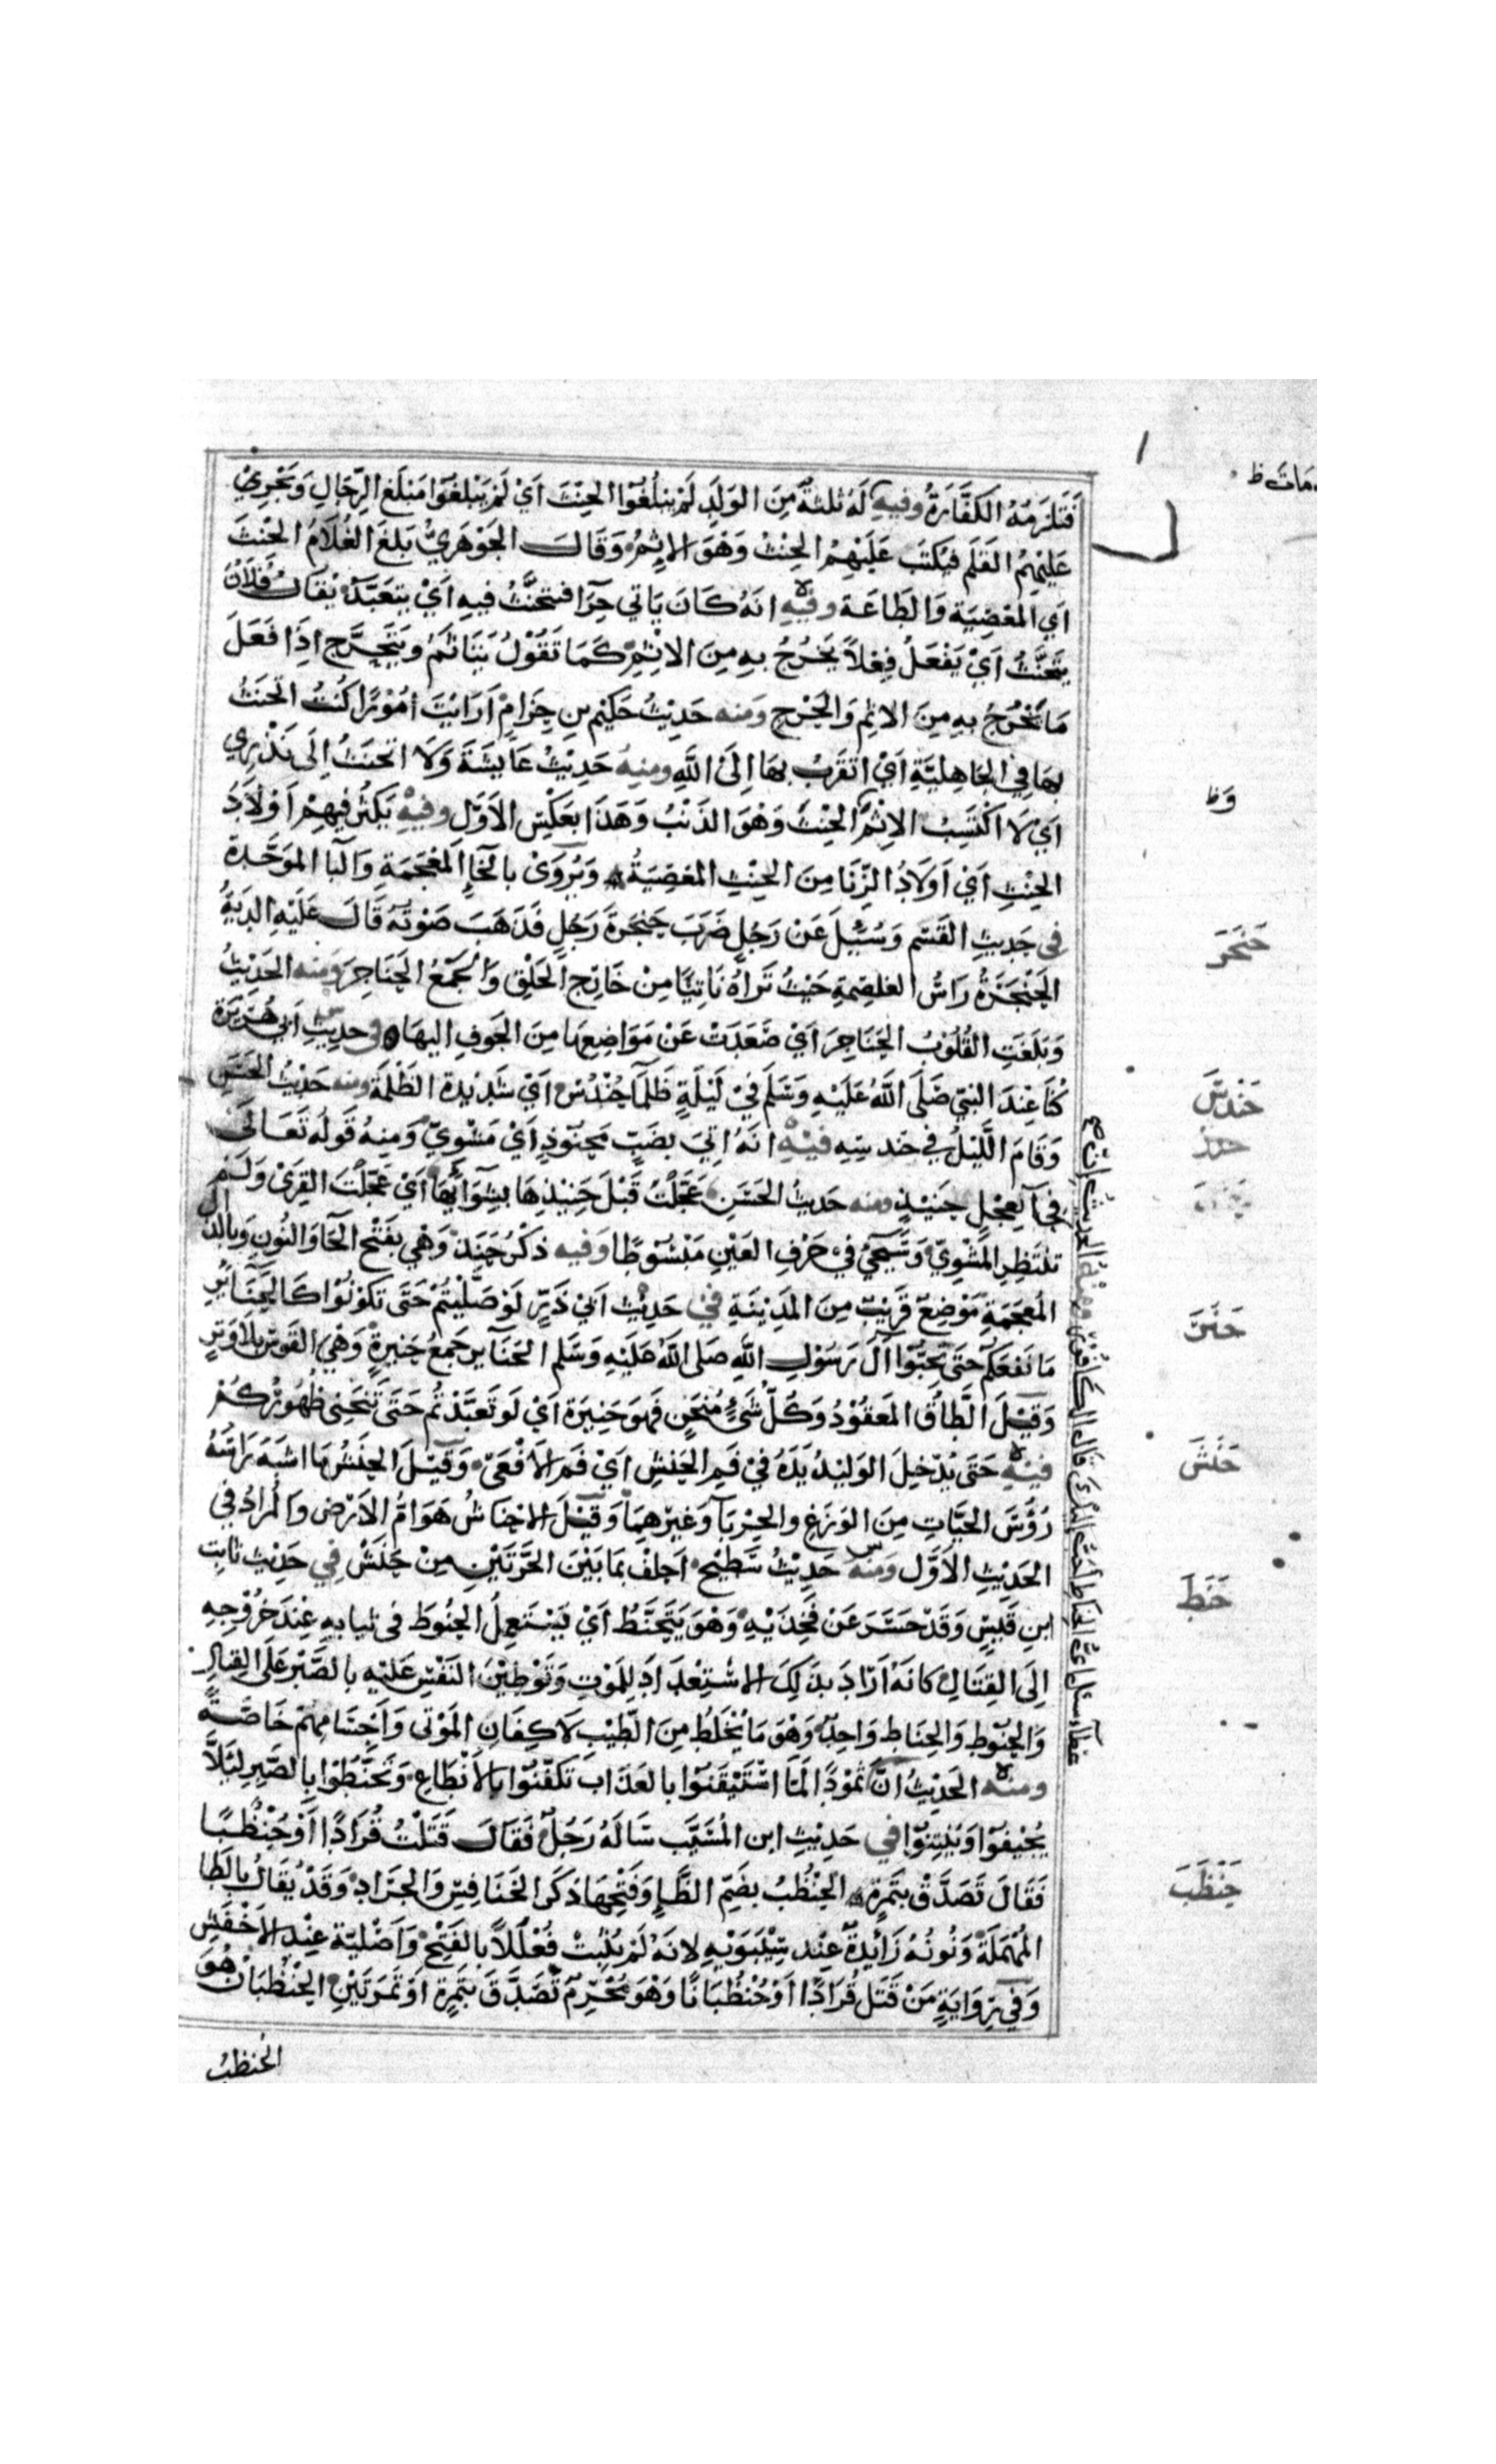 مات ظ
فَتَلْزَمُهُ الكَفَّارَةُ وفيهِ لَهُ ثلثةٌ مِنَ الوَلَدِ لَمْ يبلُغُوا الحِنْثَ اَيْ لَمْ يَبْلغُوا مَبْلَغَ الرِّجَالِ وَيَجْرِيْ
عَلَيْهِمُ القَلَم فيُكتَب عَلَيْهِمُ الحِنْثُ وَهْوَ الاِثمُ وَقَالَ الجَوْهَرِيُّ بَلَغَ الغُلَامُ الحِنثَ
اَيِ المَعْصِيَةَ وَالطَاعَةَ وفيهِ انهُ كَانَ يَاتي حِرَآ فيتحنَّثُ فيهِ اَيْ يتعَبَّدُ يُقَالُ فُلَانٌ
يتحَنَّثُ اَيْ يَفْعَلُ فِعْلاً يَخرُجُ بهِ مِنَ الاِثمِ كَمَا تَقُوْلُ يَتَاثَّمُ ويَتَحَرَّج اِذَا فَعَلَ
مَا يَخْرُجُ بهِ مِنَ الاِثمِ وَالحَرَجِ وَمنه حَدِيْثُ حَكِيْمِ بنِ حِزَامٍ اَرَايْتَ امُوْرًا كُنتُ اتَحَنثُ
بهَا فِي الجَاهِليَّةِ اَيْ اتقَرَّبُ بهَا اِلَى اللَّهِ ومنهُ حَدِيْثُ عَايشَةَ وَلَا اتحَنثُ اِلَى نَذْرِي
اَيْ لَا اكْتَسِبُ الاِثْمَ الحِنْثَ وَهْوَ الذَنْبُ وَهَذَا بِعَكْسِ الاَوَّل وفيهِ يَكثُرُ فِيهِمْ اَوْلَادُ
الحِنْثِ اَيْ اَولَادُ الزِّنَا مِنَ الحِنْثِ المَعْصِيَةُ وَيُرْوَىْ بالخَآءِ المُعْجَمَةِ وَالبَا المُوَحَّدة
في حَدِيثِ القَسَم وَسُئِلَ عَنْ رَجُلٍ ضَرَبَ حَنْجَرَةَ رَجُلٍ فَذَهَبَ صَوْتُهُ قَالَ عَلَيْهِ الدِيَةُ
الحَنْجَرَةُ رَاسُ الغَلْصَمَةِ حَيْثُ تَرَاهُ نَاتِيًا مِنْ خَارِجِ الحَلْقِ وَالجَمْعُ الحَنَاجِرُ وَمنه الحَدِيْثُ
وَبَلَغَتِ القُلُوْبُ الحَنَاجِرَ اَيْ صَعَدَتْ عَنْ مَوَاضِعِهَا مِنَ الجَوفِ اليهَا في حديثِ ابي هُرَيرَة
كُنا عِنْدَ النبي صَلَى اللَّهُ عَلَيْهِ وَسَلمَ فيْ لَيْلَةٍ ظَلمَآ حِنْدِسْ اَيْ شَدِيْدَة الظُلْمَةِ ومنه حَدِيْثُ الحَسَن
وَقَامَ اللَّيْلُ في حندسِهِ فيْهِ انهُ اُتيَ بضَبٍّ مَحنُوْذٍ اَيْ مَشْوِيٍّ وَمِنهُ قَولُهُ تَعَالَى
فجآ بعِجْلٍ حَنِيْذٍ ومنه حَديثُ الحَسَنِ عَجَّلْتُ قَبْلَ حَنِيْذِهَا بشِوَآيهَا اَيْ عَجَّلْتُ القِرَىْ وَلَمْ
تنتَظِر المَشْوِيَّ وَسَيَجيُ في حَرْفِ العَيْنِ مَبْسُوْطًا وَفيه ذكْرُ حَنَذٍ وَهْيَ بفَتْح الحَآ وَالنُونِ وَبالذال
المُعجَمَةِ مَوْضِعٌ قَرِيْبٌ مِنَ المَدِيْنَةِ فيْ حَدِيْثِ ابيْ ذَرٍّ لَوْ صَلَّيْتُمْ حَتَى تكُونُوْا كَالحَنَآيرِ
مَا نَفعَكمْ حَتَى تُحِبُّوْا اٰلَ رَسُوْلِ اللَّهِ صَلى اللَّهُ عَلَيْهِ وَسَلم الحَنَآير جَمعُ حَنِيرَةٍ وَهْيَ القَوسُ بلا وَتَرٍ
وَقِيْلَ الطَّاقُ المَعقُوْدُ وَكُلُّ شَيْءٍ مُنحَنٍ فَهوَ حَنِيرَة اَيْ لَو تَعبَّدْتُم حَتَى تَنحَنِي ظُهُوْرُكُمْ
فيْهِ حَتَى يُدْخِلَ الوَلِيْدُ يَدَهُ فيْ فَمِ الحَنَشِ اَيْ فَمِ الاَفْعَى وَقِيْلَ الحَنَشُ مَا اشبَهَ رَاسُهُ
رُؤُسَ الحَيَّاتِ مِنَ الوَزَغِ والحِرْبَآ وَغَيْرِهمَا وَقِيْلَ الاَحْنَاشُ هَوَامُّ الاَرْضِ وَالمُرَادُ في
الحَدِيْثِ الاَوَّل وَمنه حَدِيْثُ سَطِيْحٍ اَحلِفُ بمَا بَيْنَ الحَرَّتَيْنِ مِنْ حَنَشْ فِي حَدِيْثِ ثابِتِ
ابنِ قَيْسٍ وَقَدْ حَسَرَ عَن فَخِذَيْهِ وَهْوَ يَتَحَنَّطُ اَيْ يَسْتَعمِلُ الحَنُوطَ في ثيابهِ عِنْدَ خُرُوْجهِ
اِلَى القِتَالِ كانهُ اَرَادَ بذَلِكَ الاِسْتِعْدَادَ لِلمَوْتِ وَتَوْطِيْنَ النَفْسِ عَلَيْهِ بالصَّبْرِ عَلَى القِتَالِ
وَالحَنُوْطِ وَالحِنَاط وَاحِدٌ وَهْوَ مَا يُخْلَطُ مِنَ الطِّيْبِ لاَكفَانِ المَوْتى وَاَجْسَامِهِمْ خَاصَّةً
ومنه الحَدِيْثُ انَّ ثَمُوْدًا لَمَّا اسْتَيْقَنُوا بالعَذَاب تَكفَّنُوْا بالاَنْطَاعِ وَتَحَنَّطُوْا بالصَّبِرِ لئَلَّا
يُجِيفُوْا وَيُنْتِنُوْا في حَدِيْثِ ابن المُسَيَّب سَالَهُ رَجُلٌ فَقَالَ قَتَلْتُ قُرَادًا اَوْ حُنْظُبًا
فَقَالَ تَصَدَّقْ بتَمْرَةٍ الحُنْظُبُ بضَمِّ الظَّآءِ وَفَتْحِهَا ذَكَر الخَنَافِسِ وَالجَرَادِ وَقَدْ يُقَالُ بالطَا
المُهْمَلَةِ وَنُونُهُ زَآيِدَةٌ عِنْد سِيْبَوَيْهِ لانهُ لَمْ يُثْبِتْ فُعْلَلاً بالفَتْح وَاَصْليّة عِنْد الاَخْفَش
وَفيْ رِوَايَةٍ مَنْ قَتَلَ قُرَادًا اَوْ حُنْظُبَانًا وَهْوَ مُحْرِمٌ تَصَدَّقَ بتَمْرَةٍ اَوْ تَمْرَتَيْنِ الحُنْظُبَانُ هُوَ
الحُنظبُ
وَظ
حَنْجَرَ
حَنْدَسَ
حَنَرَ
حَنَشَ
حَنَطَ
حَنْظَبَ